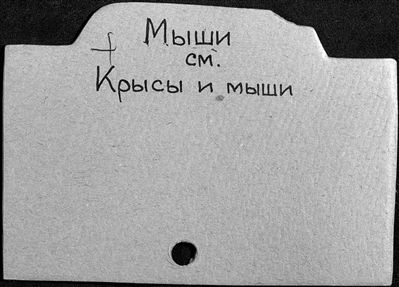 Мыши
см.
Крысы и мыши